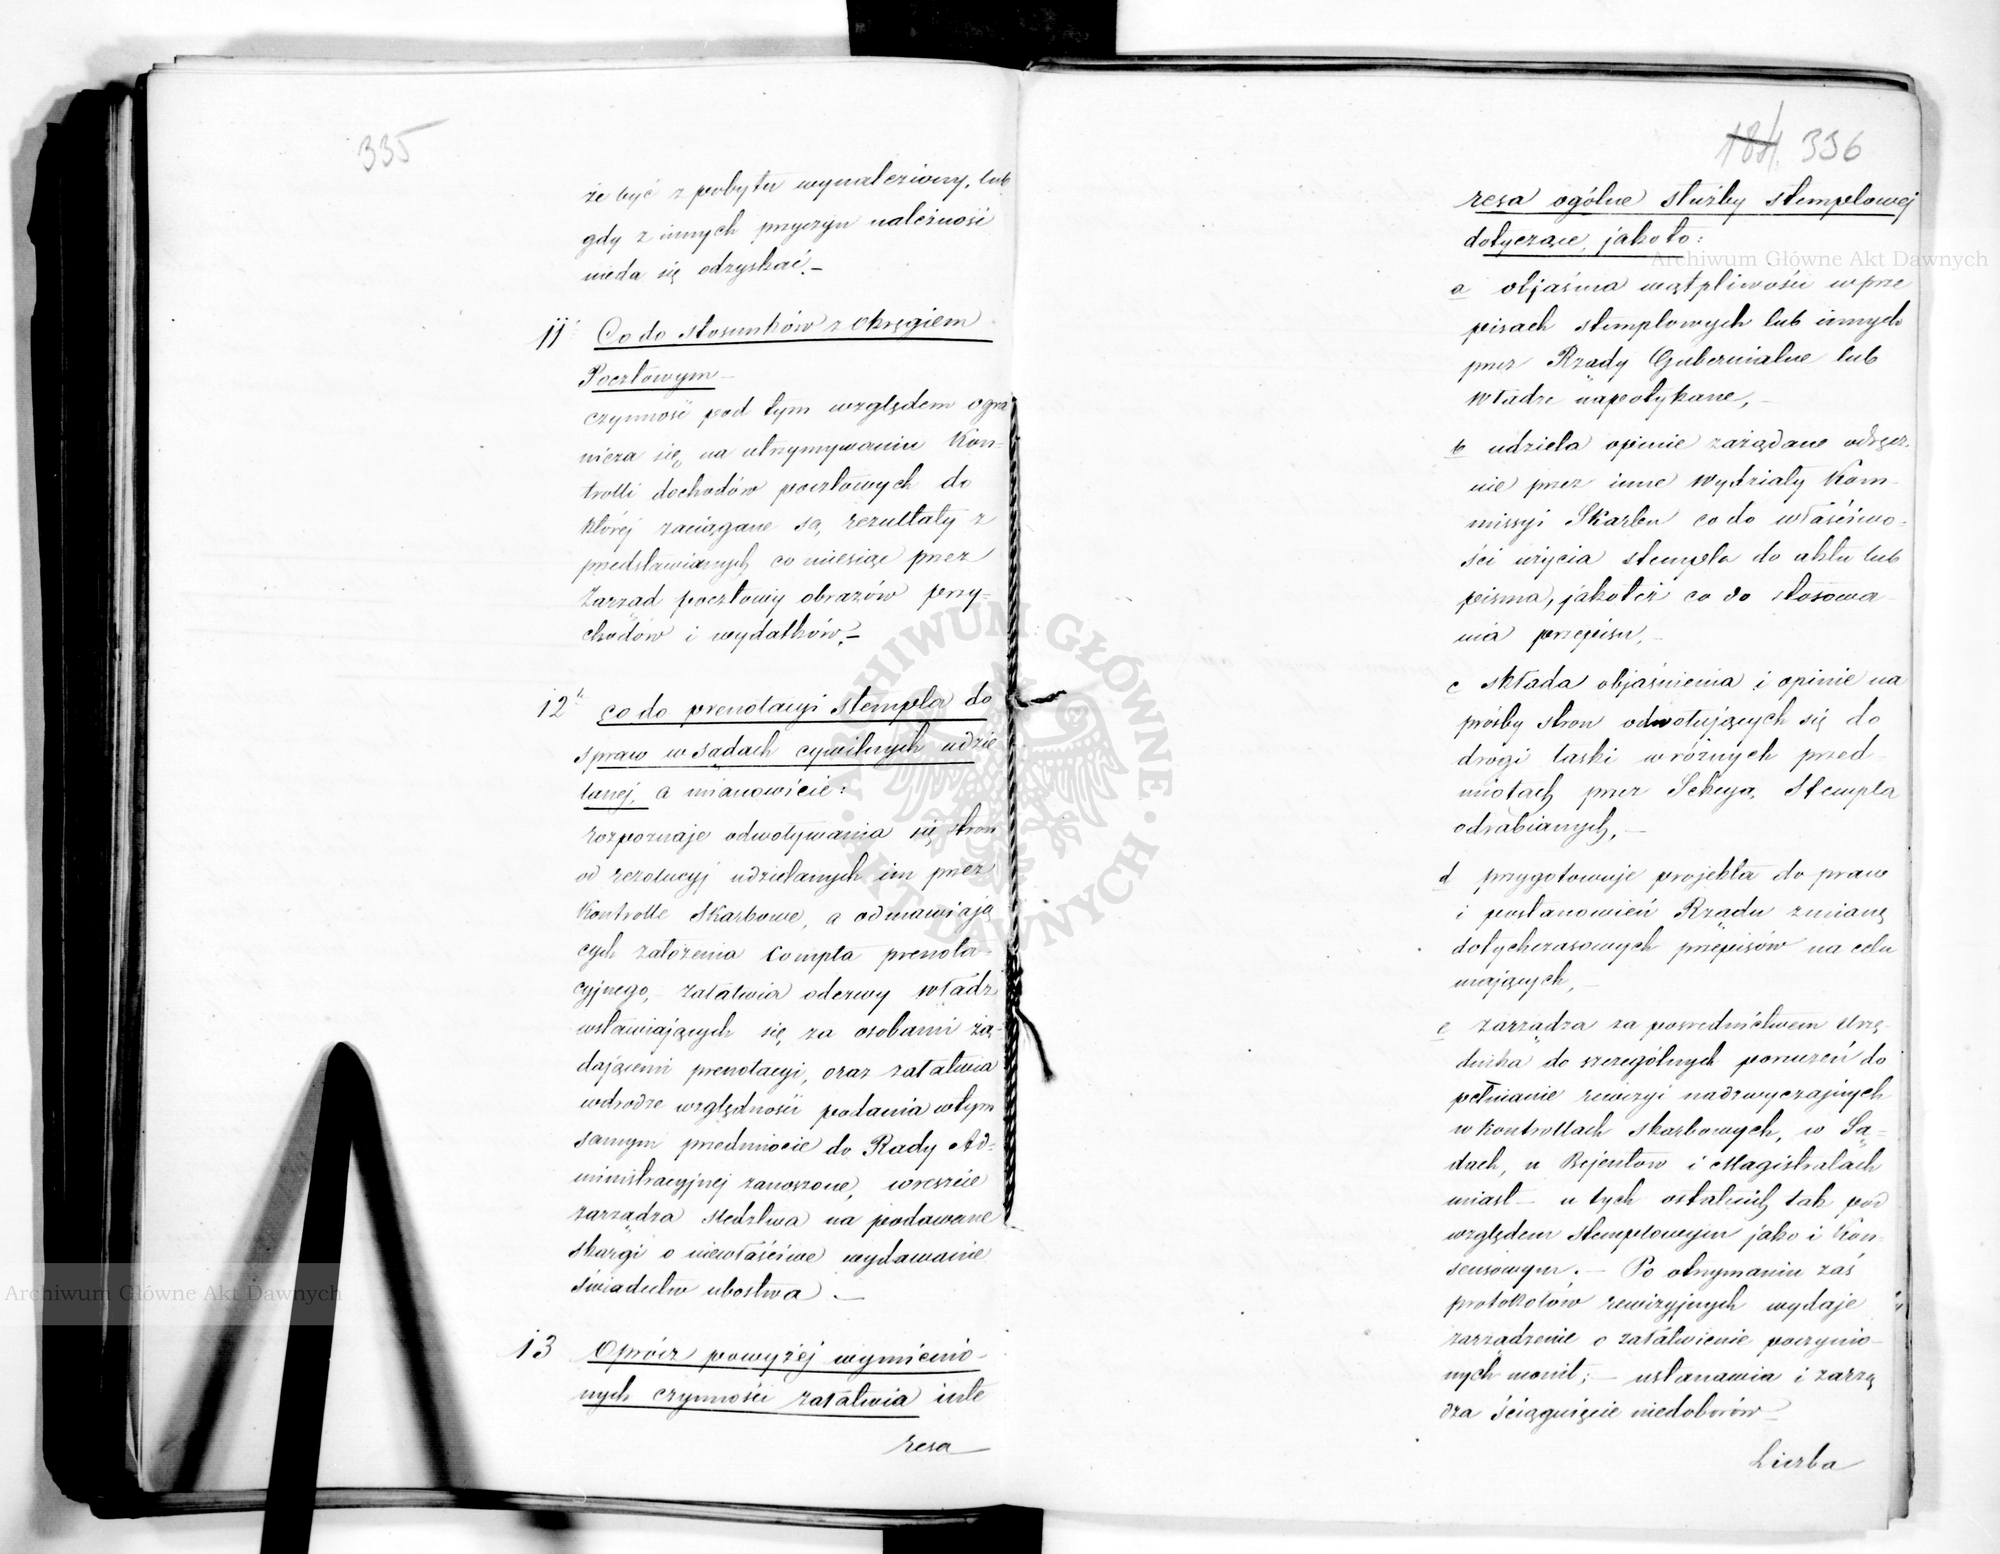 335
że być z pobytu wynaleziony, lub
gdy z innych przyczyn należność
nieda się odzyskać. –
11 Co do stosunków z Okręgiem
Pocztowym –
czynność pod tym względem ogra
nicza się na utrzymywaniu Kon-
trolli dochodów pocztowych do
której zaciągane są rezultaty z
przedstawianych co miesiąc przez
Zarząd pocztowy obrazów przy-
chodów i wydatków. –
12 Co do prenotacyi stempla do
spraw w sądach cywilnych udzie
lanej, a mianowicie:
rozpoznaje odwoływania się stron
od rezolucyj udzielanych im przez
Kontrolle Skarbowe, a odmawiają
cych założenia Compta prenota-
cyjnego, załatwia odezwy Władz
wstawiających się za osobami żą-
dającemi prenotacyi, oraz załatwia
wdrodze względności podania wtym
samym przedmiocie do Rady Ad-
ministracyjnej zanoszone, wreszcie
zarządza śledztwa na podawane
skargi o niewłaściwe wydawanie
świadectw ubostwa. –
13 Oprócz powyżej wymienio-
nych czynności załatwia inte
resa
184. 336
resa ogólne służby stemplowej
dotyczące, jakoto:
a objaśnia wątpliwości wprze
pisach stemplowych lub innych
przez Rządy Gubernialne lub
Władze napotykane, –
b udziela opinie zażądane odręcz-
nie przez inne Wydziały Kom-
missyi Skarbu co do właściwo-
ści użycia stempla do aktu lub
pisma, jakoteż co do stosowa-
nia przepisu, –
c składa objaśnienia i opinie na
prośby stron odwołujących się do
drogi łaski w różnych przed-
miotach przez Sekcyą Stempla
odrabianych, –
d przygotowuje projekta do praw
i postanowień Rządu zmianę
dotychczasowych przepisów na celu
mających, –
e zarządza za posrednictwem Urzę-
dnika do szczególnych poruczeń do
pełnianie rewizyi nadzwyczajnych
w Kontrollach Skarbowych, w Są-
dach, u Rejentów i Magistratach
miast – u tych ostatnich tak pod
względem stemplowym jako i Kon-
sensowym. – Po otrzymaniu zaś
protokołów rewizyjnych wydaje
zarządzenie o załatwienie poczynio-
nych monit; – ustanawia i zarzą
dza ściągnięcie niedoborów –
Liczba
Archiwum Główne Akt Dawnych
Archiwum Główne Akt Dawnych
ARCHIWUM GŁÓWNE AKT DAWNYCH